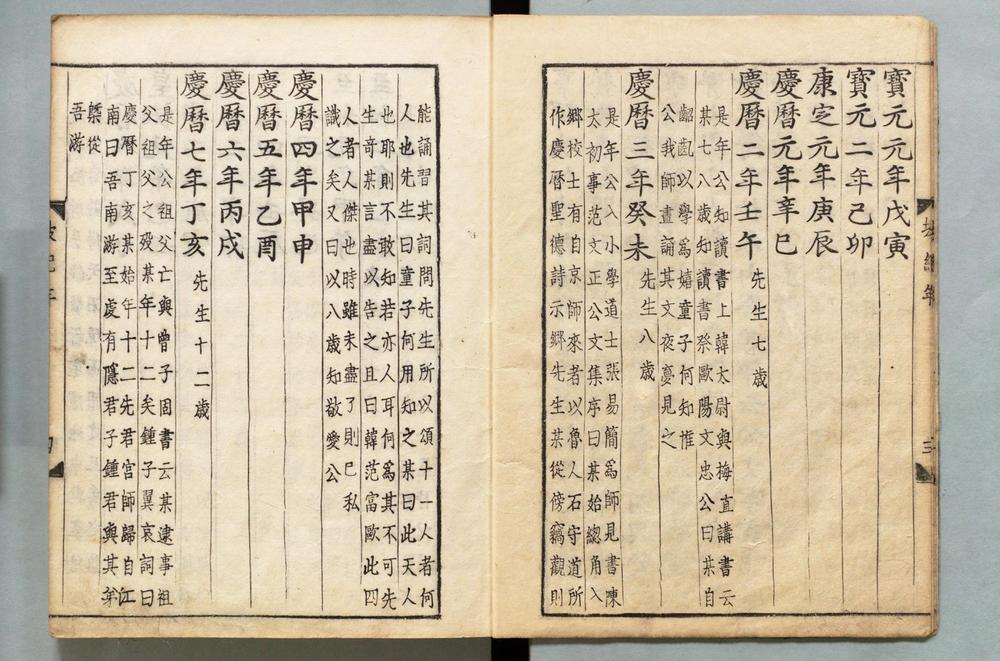 寶元元年戊寅
寶元二年己卯
康定元年庚辰
慶曆元年辛巳
慶曆二年壬午 先生七歲
是年公知讀書上韓太尉與梅直講書云
某七八歲知讀書祭歐陽文忠公曰某自
齠齔以學爲嬉童子何知惟
公我師晝誦其文夜夢見之
慶曆三年癸未 先生八歲
是年公入小學道士張易簡爲師見書陳
太初事范文正公文集序曰某始總角入
鄉校士有自京師來者以魯人石守道所
作慶曆聖德詩示鄉先生某從傍竊觀則
三
能誦習其詞問先生所以頌十一人者何
人也先生曰童子何用知之某曰此天人
也耶則不敢知若亦人耳何爲其不可先
生奇某言盡以告之且曰韓范富歐此四
人者人傑也時雖未盡了則已私
識之矣又曰以八歲知敬愛公
慶曆四年甲申
慶曆五年乙酉
慶曆六年丙戌
慶曆七年丁亥 先生十二歲
是年公祖父亡與曾子固書云某逮事祖
父祖父之歿某年十二矣鍾子翼哀詞曰
慶曆丁亥某始年十二先君宮師歸自江
南曰吾南游至虔有隱君子鍾君與其弟
槩從
吾游